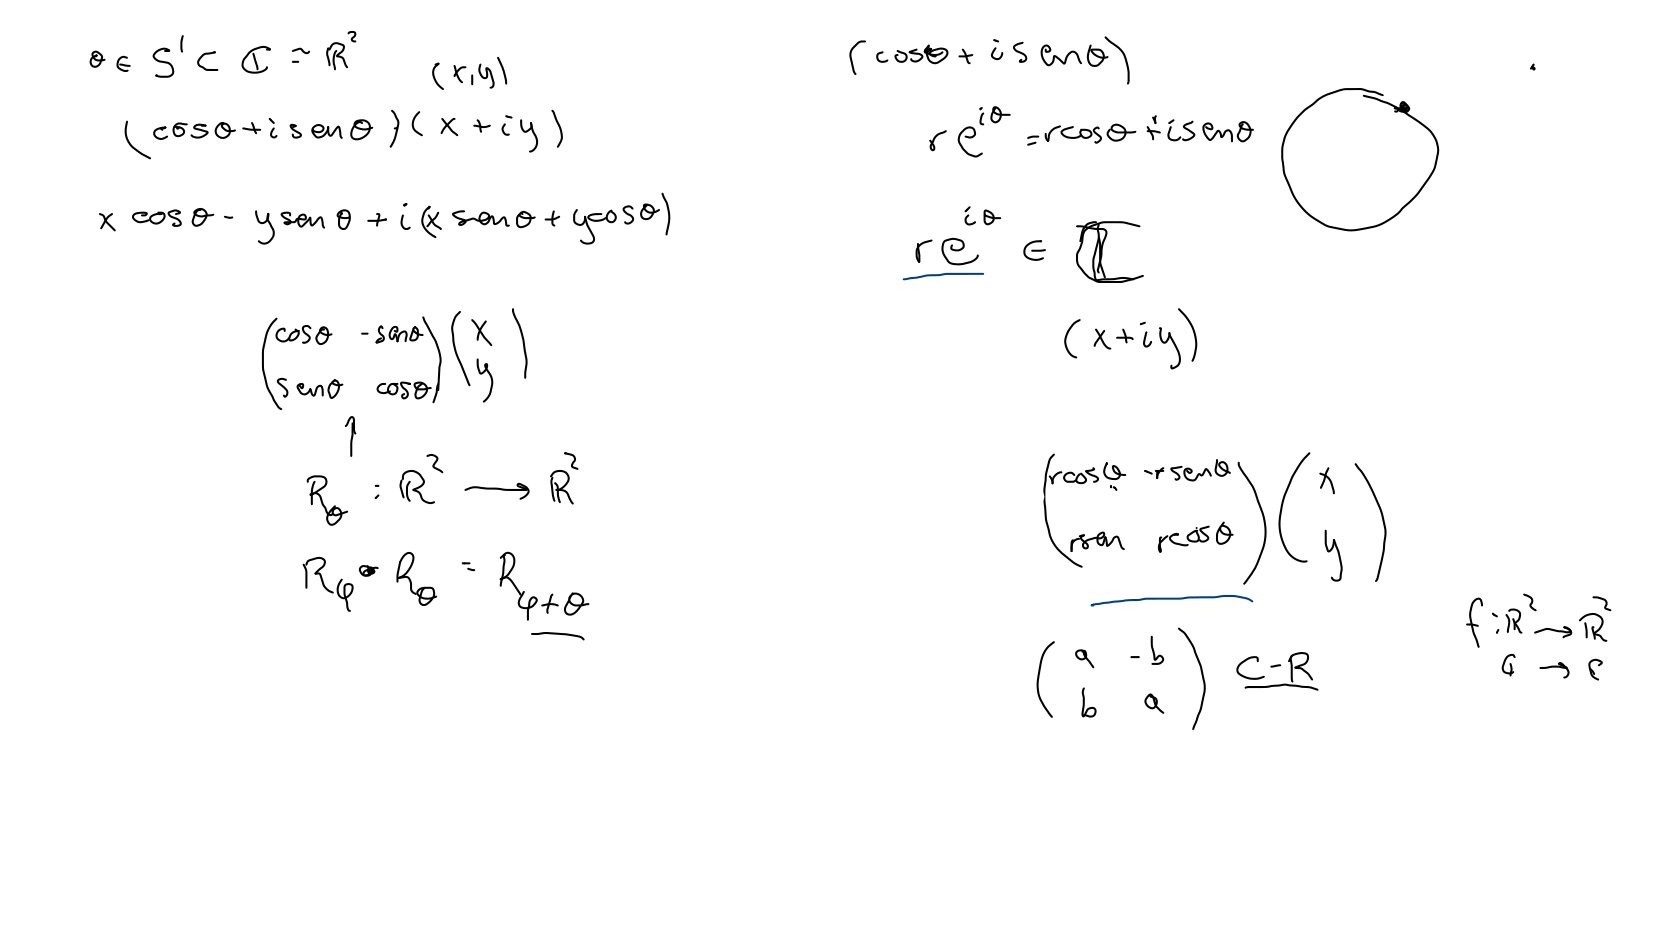 θ ∈ S¹ ⊂ ℂ ≃ ℝ²
(x,y)
(cosθ+isenθ)(x+iy)
x cosθ - ysenθ + i(xsenθ+ycosθ)
(cosθ -senθ) (x)
(senθ cosθ) (y)
↑
R_θ : ℝ² → ℝ²
R_φ • R_θ = R_φ+θ
(cosθ + isenθ)
re^iθ = rcosθ + isenθ
re^iθ ∈ ℂ
(x+iy)
(rcosθ -rsenθ) (x)
(rsen rcosθ) (y)
(a -b) C-R
(b a)
f : ℝ² → ℝ²
ℂ → ℂ